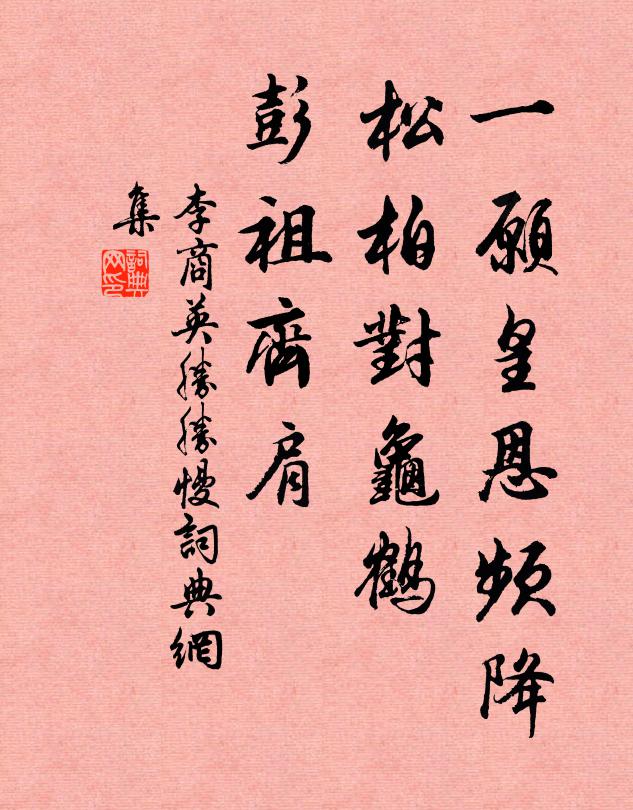 一願皇恩頻降
松柏對龜鶴
彭祖齊肩
李商英勝勝慢詞典網
集
詞典
网印